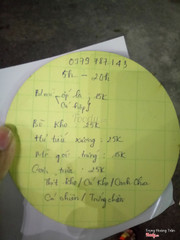 0399 787 143
5h - 20h
Bánh ốp la 15K
Bò kho : 25K
Hủ tiếu xương : 25K
Mì gói trứng : 15K
Cơm trưa : 25K
Thịt kho / Cá kho / Canh chua
Cá chiên / Trứng chiên
Trung Hoàng Trần